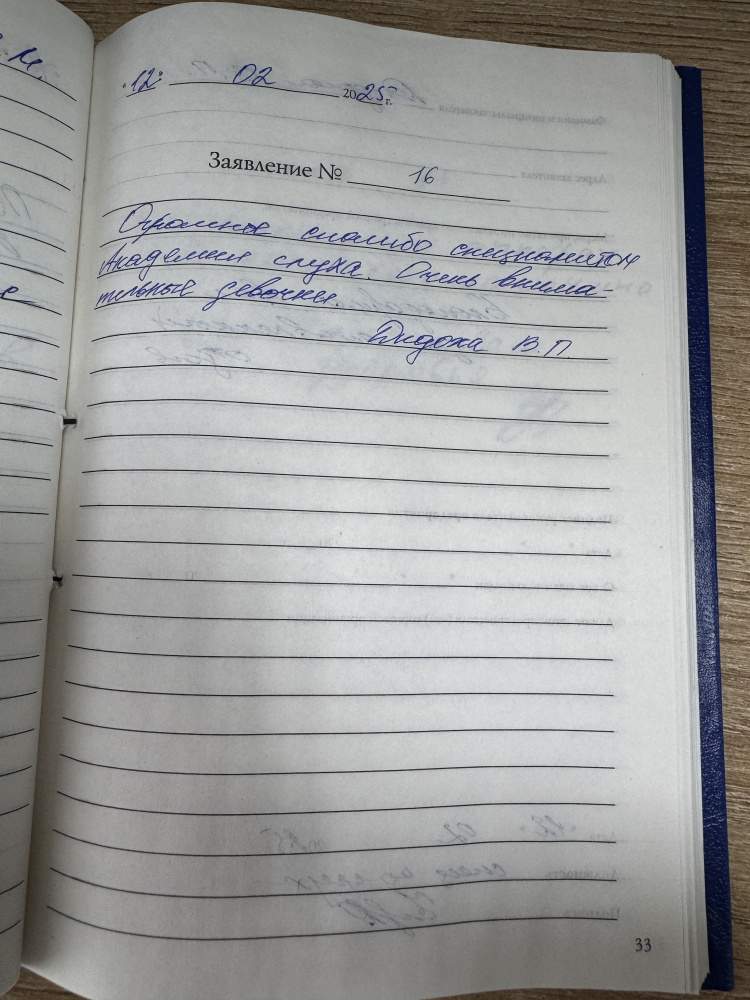 "12" 02 2025 г.
Заявление № 16
Огромное спасибо специалистам
Академии слуха. Очень внима-
тельные девочки
Дидоха В.П
33